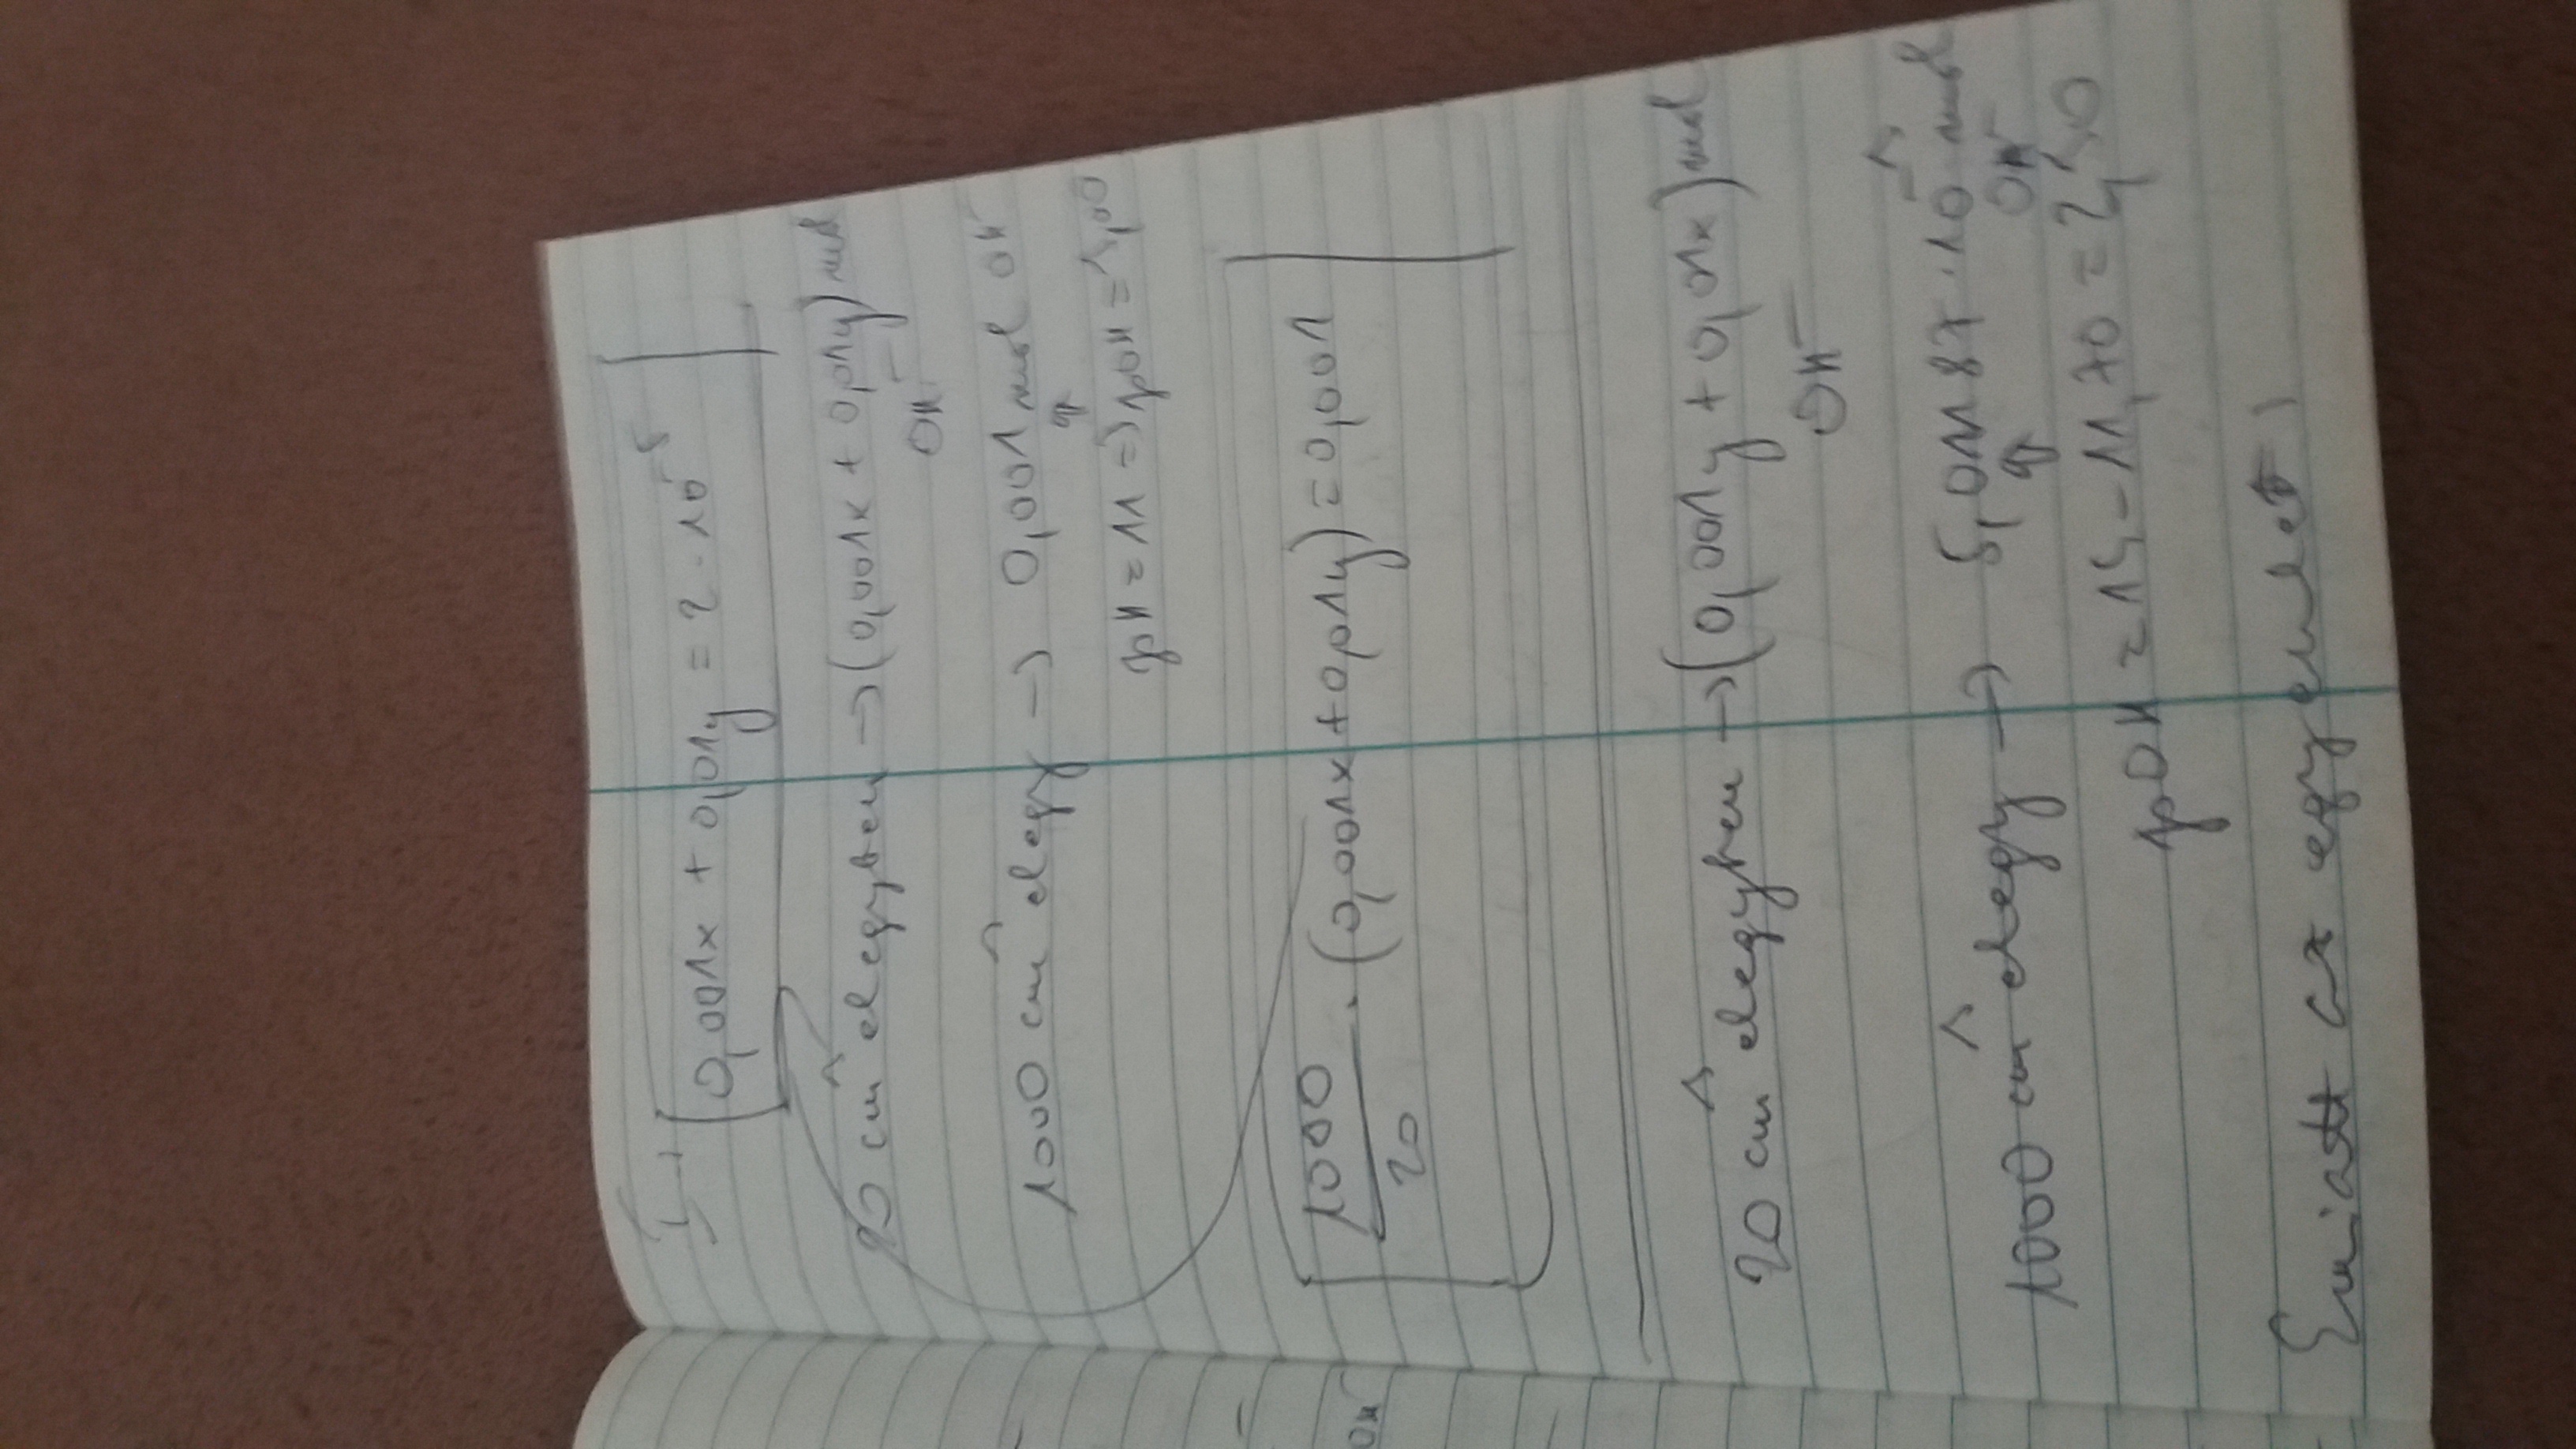 0,001x + 0,01y = 2·10⁻⁵
20 cm³ elegyben → (0,001x + 0,01y) mol
OH⁻
1000 cm³ elegy → 0,001 mol OH⁻
pH = 11 => pOH = 3,00
1000/20 · (0,001x + 0,01y) = 0,001
20 cm³ elegyben → (0,001y + 0,01x) mol
OH⁻
1000 cm³ elegy → 5,01187·10⁻³ mol
OH⁻
pOH = 14 - 11,70 = 2,30
Emiatt az egyenlet:
OH⁻